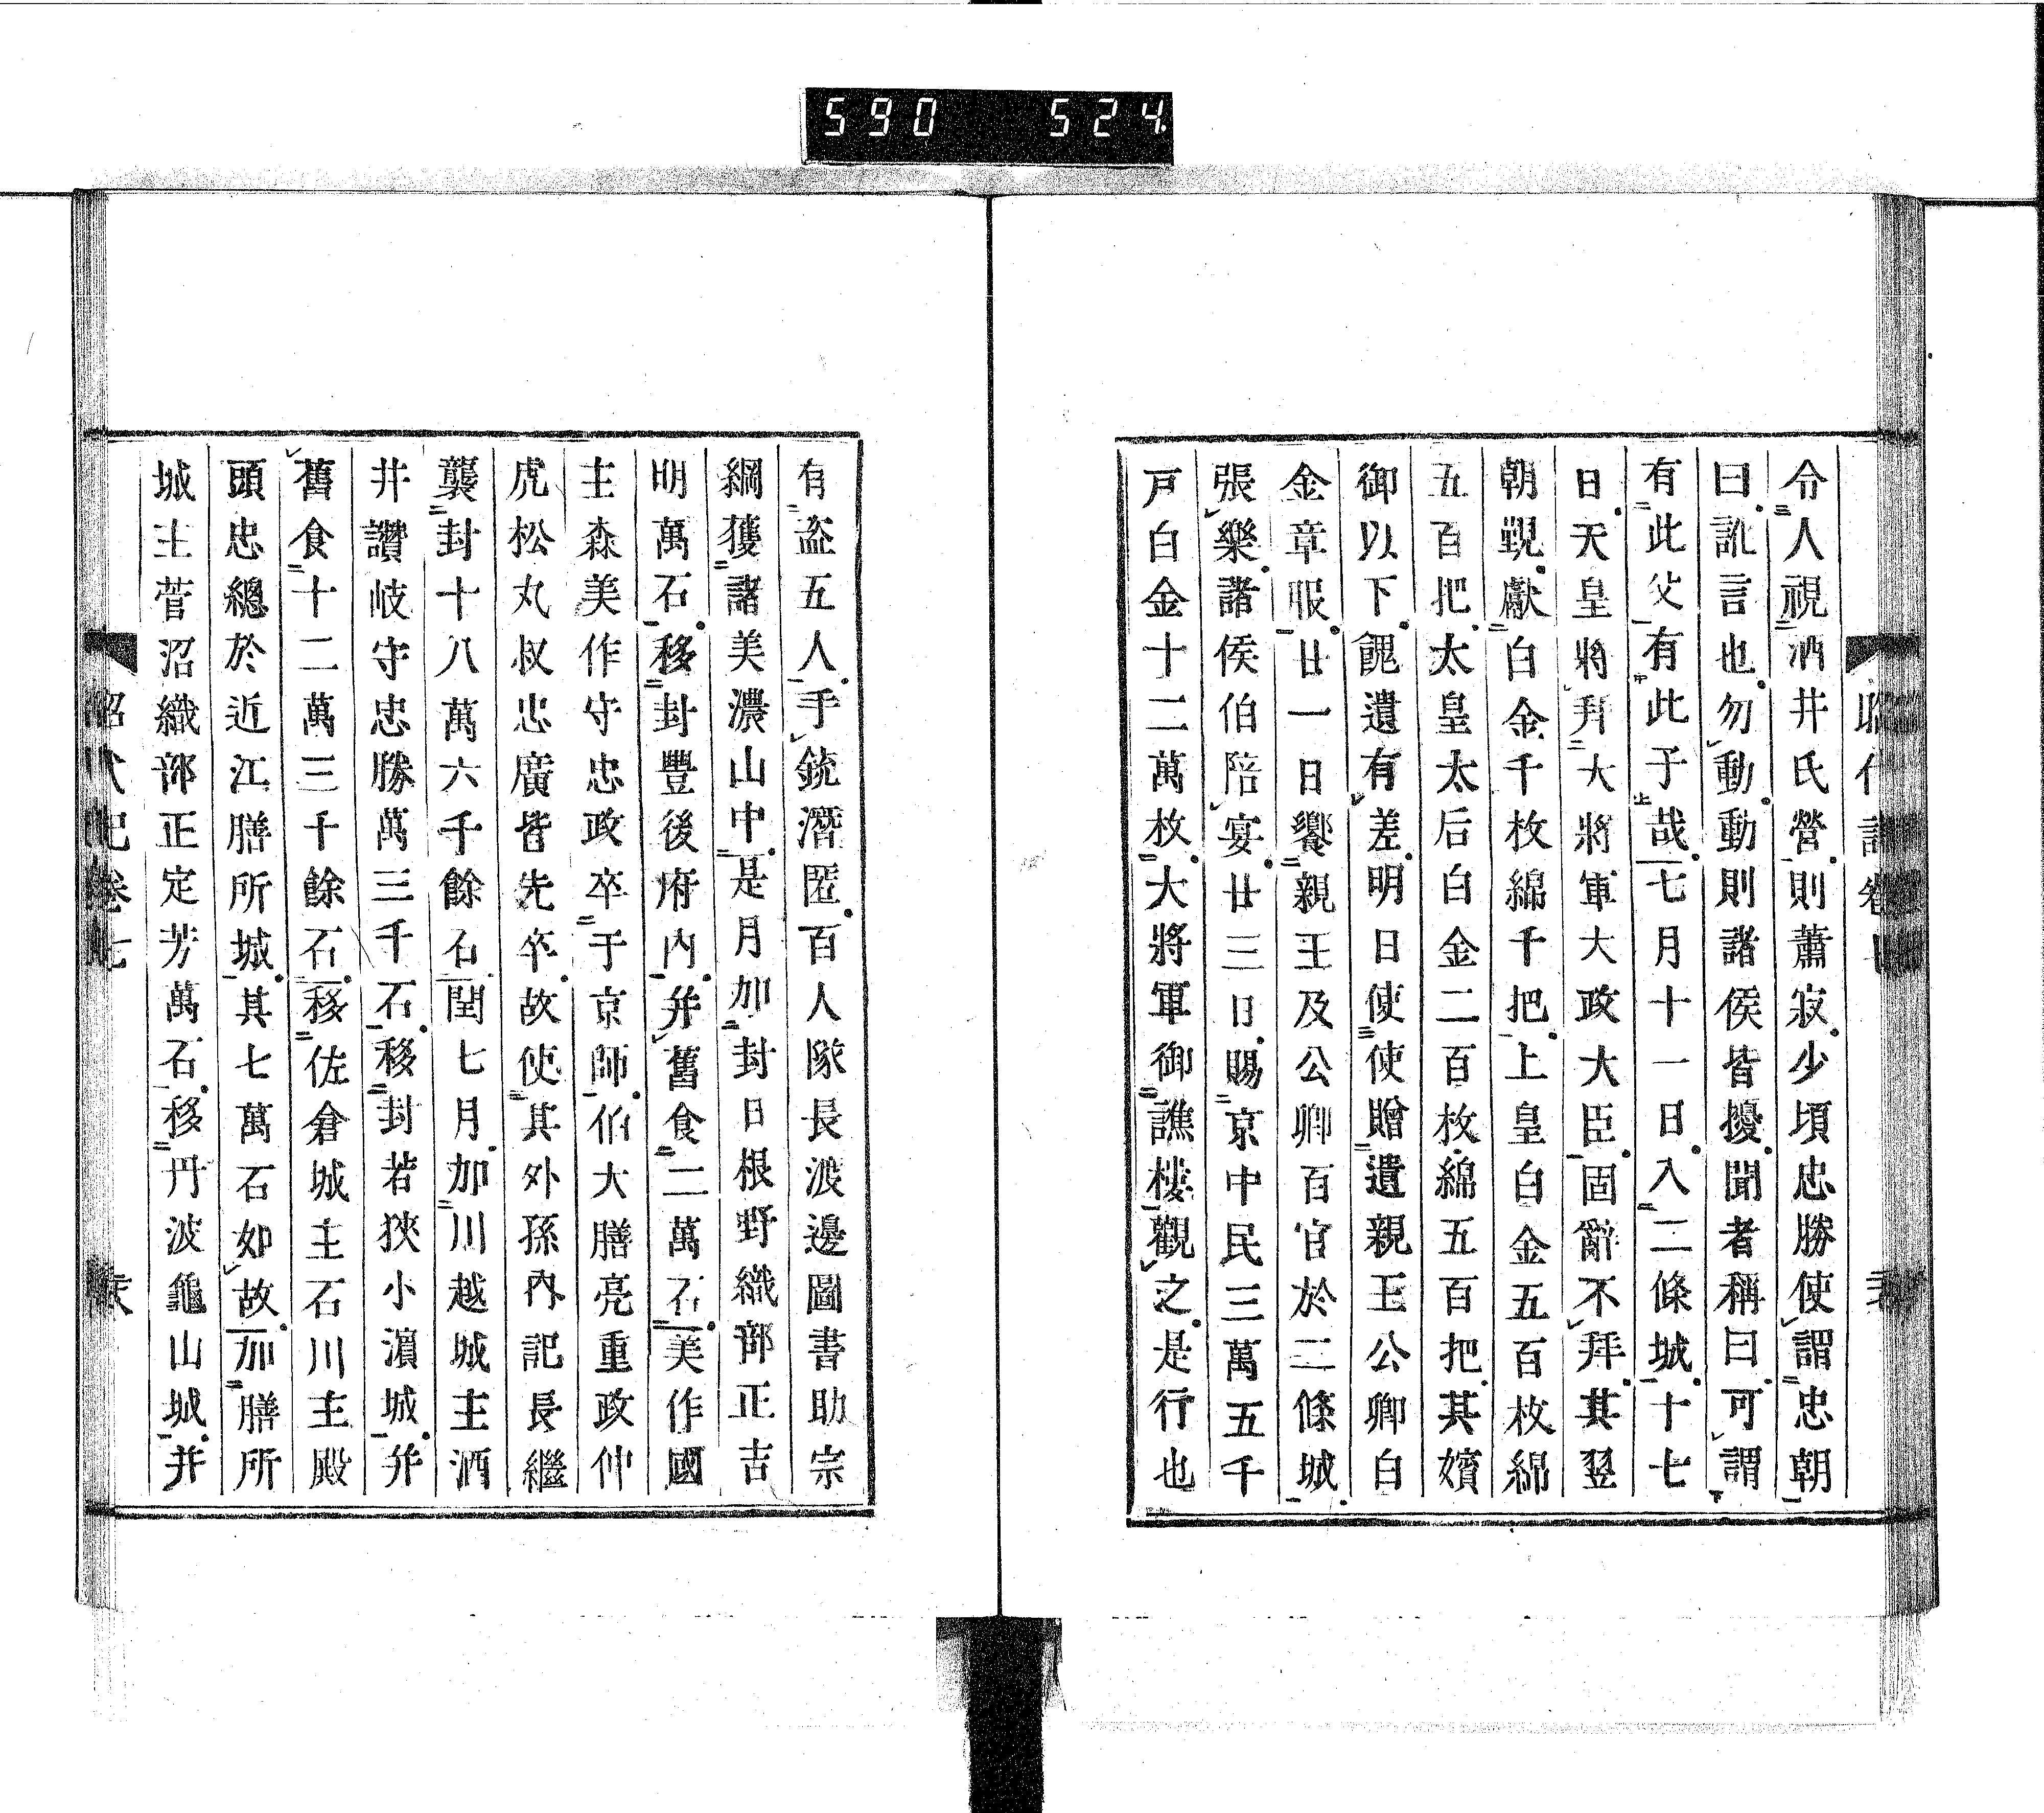 590 524
令人視酒井氏營則蕭寂少頃忠勝使謂忠朝
曰訛言也勿動動則諸侯皆擾聞者稱曰可謂
有此父有此子哉七月十一日入二條城十七
日天皇將拜大將軍大政大臣固辭不拜其翌
朝覲獻白金千枚綿千把上皇白金五百枚綿
五百把太皇太后白金二百枚綿五百把其嬪
御以下餽遺有差明日使使贈遺親王公卿白
金章服廿一日饗親王及公卿百官於二條城
張樂諸侯伯陪宴廿三日賜京中民三萬五千
戸白金十二萬枚大將軍御譙樓觀之是行也
有盗五人手銃潛匿百人隊長渡邊圖書助宗
綱獲諸美濃山中是月加封日根野織部正吉
明萬石移封豐後府内并舊食二萬石美作國
主森美作守忠政卒于京師伯大膳亮重政仲
虎松丸叔忠廣皆先卒故使其外孫内記長繼
襲封十八萬六千餘石閏七月加川越城主酒
井讚岐守忠勝萬三千石移封若狹小濵城并
舊食十二萬三千餘石移佐倉城主石川主殿
頭忠總於近江膳所城其七萬石如故加膳所
城主菅沼織部正定芳萬石移丹波龜山城并
昭代記卷七